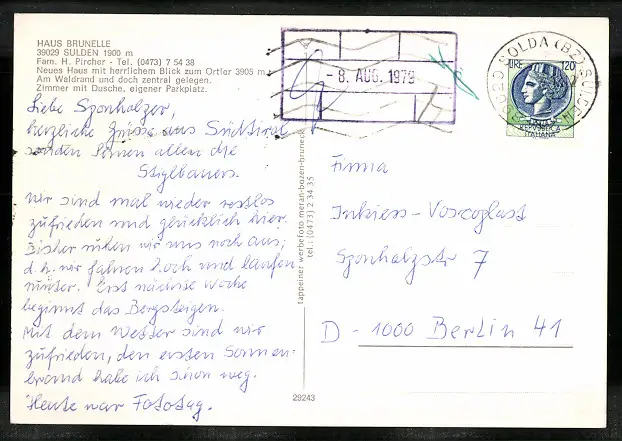 HAUS BRUNELLE
39029 SULDEN 1900 m
Fam. H. Pircher - Tel. (0473) 7 54 38
Neues Haus mit herrlichem Blick zum Ortler 3905 m
Am Waldrand und doch zentral gelegen.
Zimmer mit Dusche, eigener Parkplatz.
Liebe Sponholzer,
herzliche Grüsse aus Südtirol
senden Ihnen allen die
Stiglbauers.
Wir sind mal wieder restlos
zufrieden und glücklich hier.
Bisher ruhen wir uns noch aus,
d. h. wir fahren hoch und laufen
runter. Erst nächste Woche
beginnt das Bergsteigen.
Mit dem Wetter sind wir
zufrieden, den ersten Sonnen-
brand habe ich schon weg.
Heute war Fototag.
tappeiner werbefoto meran-bozen-bruneck
tel.: (0473) 2 34 35
29243
- 8. AUG. 1979
39029 SOLDA (BZ) SULDEN
LIRE 120
REPUBBLICA
ITALIANA
Firma
Voscoglast
Sponholzstr 7
D - 1000 Berlin 41